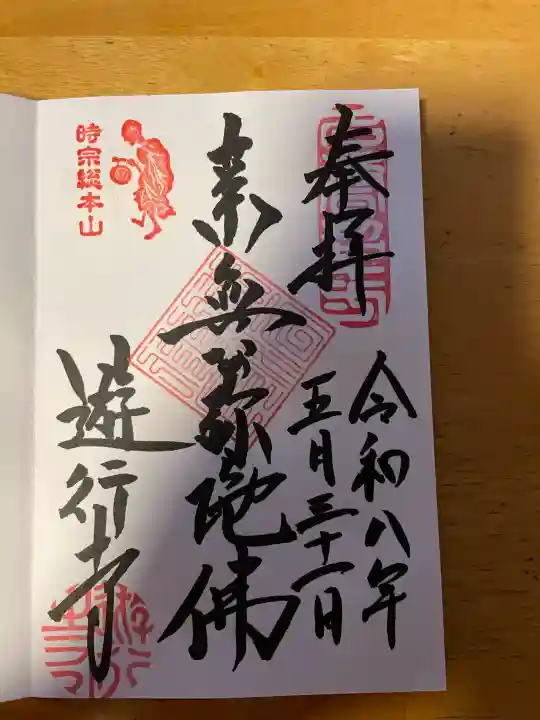 奉拝
令和八年
五月三十一日
南無阿弥陀佛
遊行寺
時宗総本山